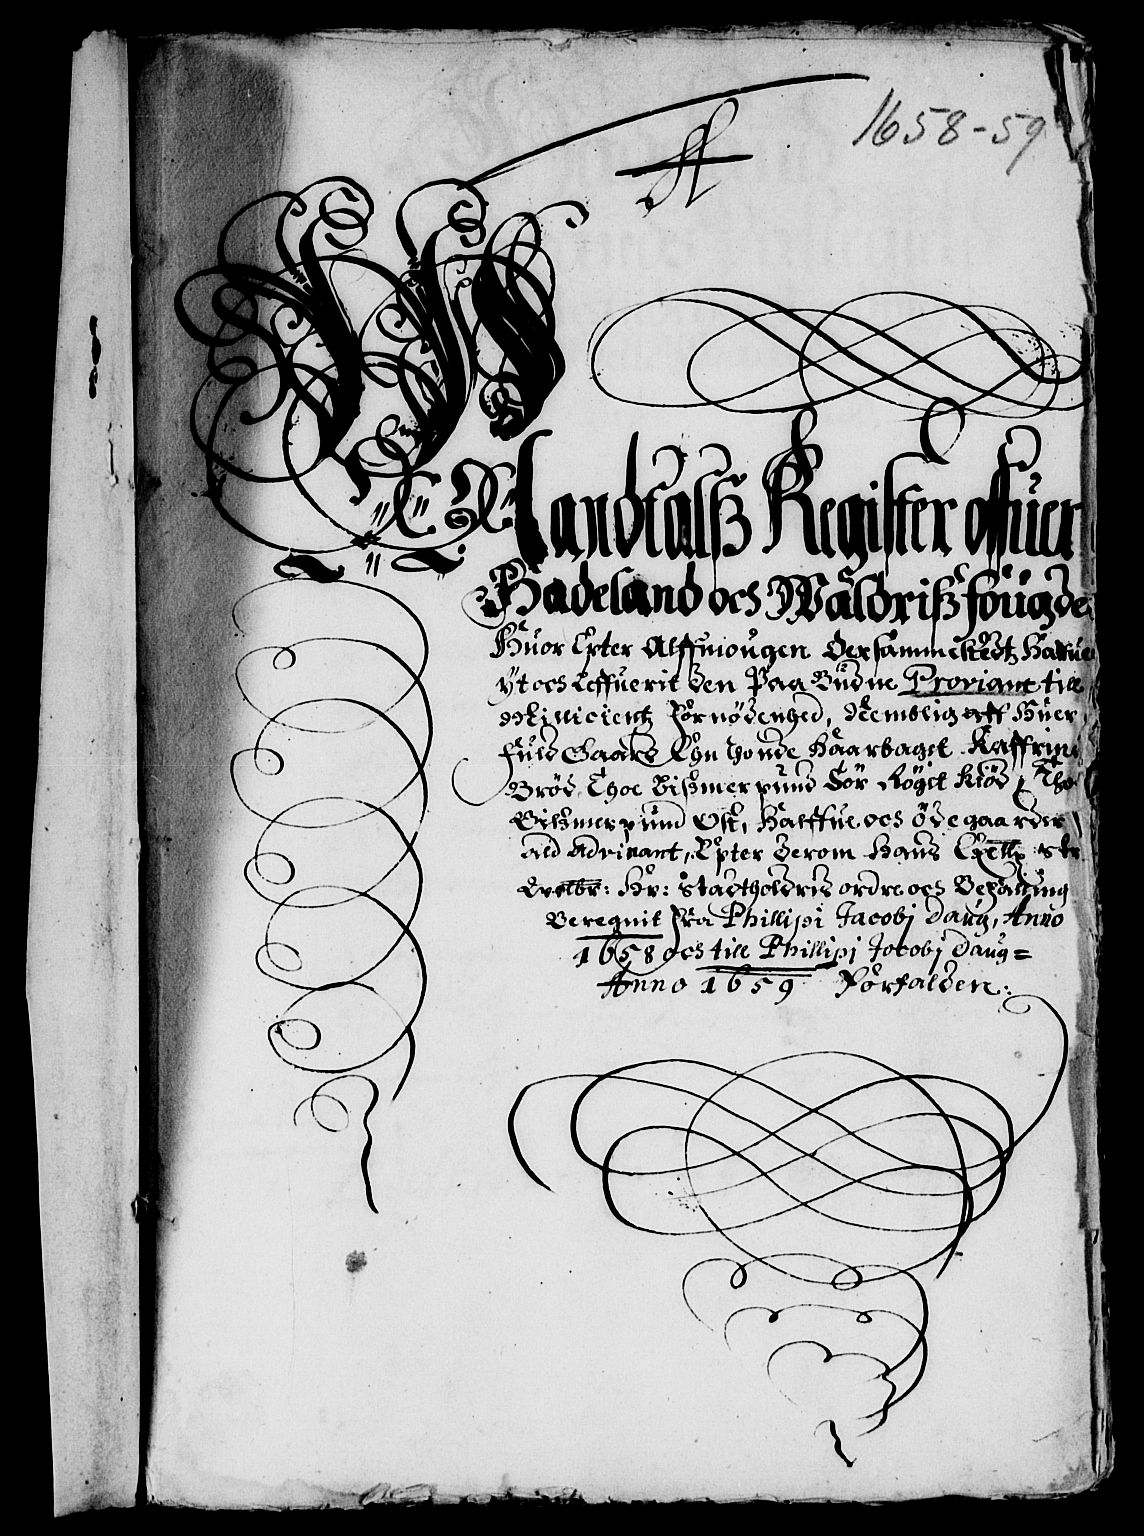 1658-59
Mandtalsz Register offuer
Hadeland och Waldrisz fougde
Huor Epter Alffmougen der sammestedtz Haffue
yt och Leffuerit den Paa Budne Proviant till
Millicientz Fornødenhed, Nemblig aff Huer
fuld Gaard Thu Honde Haarbaget Kaffring
Brød Thoe Biszmer pund Tør Røget Kiød, Tho
Biszmer pund Ost, Halffue och øde gaarder
Ald Advinant, Epter derom Hans Excell:
Excelbr: Hr: Stadtholders ordre och Befalling
Beregnit fra Phillipi Jacobj Daug, Anno
1658 och till Phillipi Jocobj Daug=
Anno 1659 Forfalden: